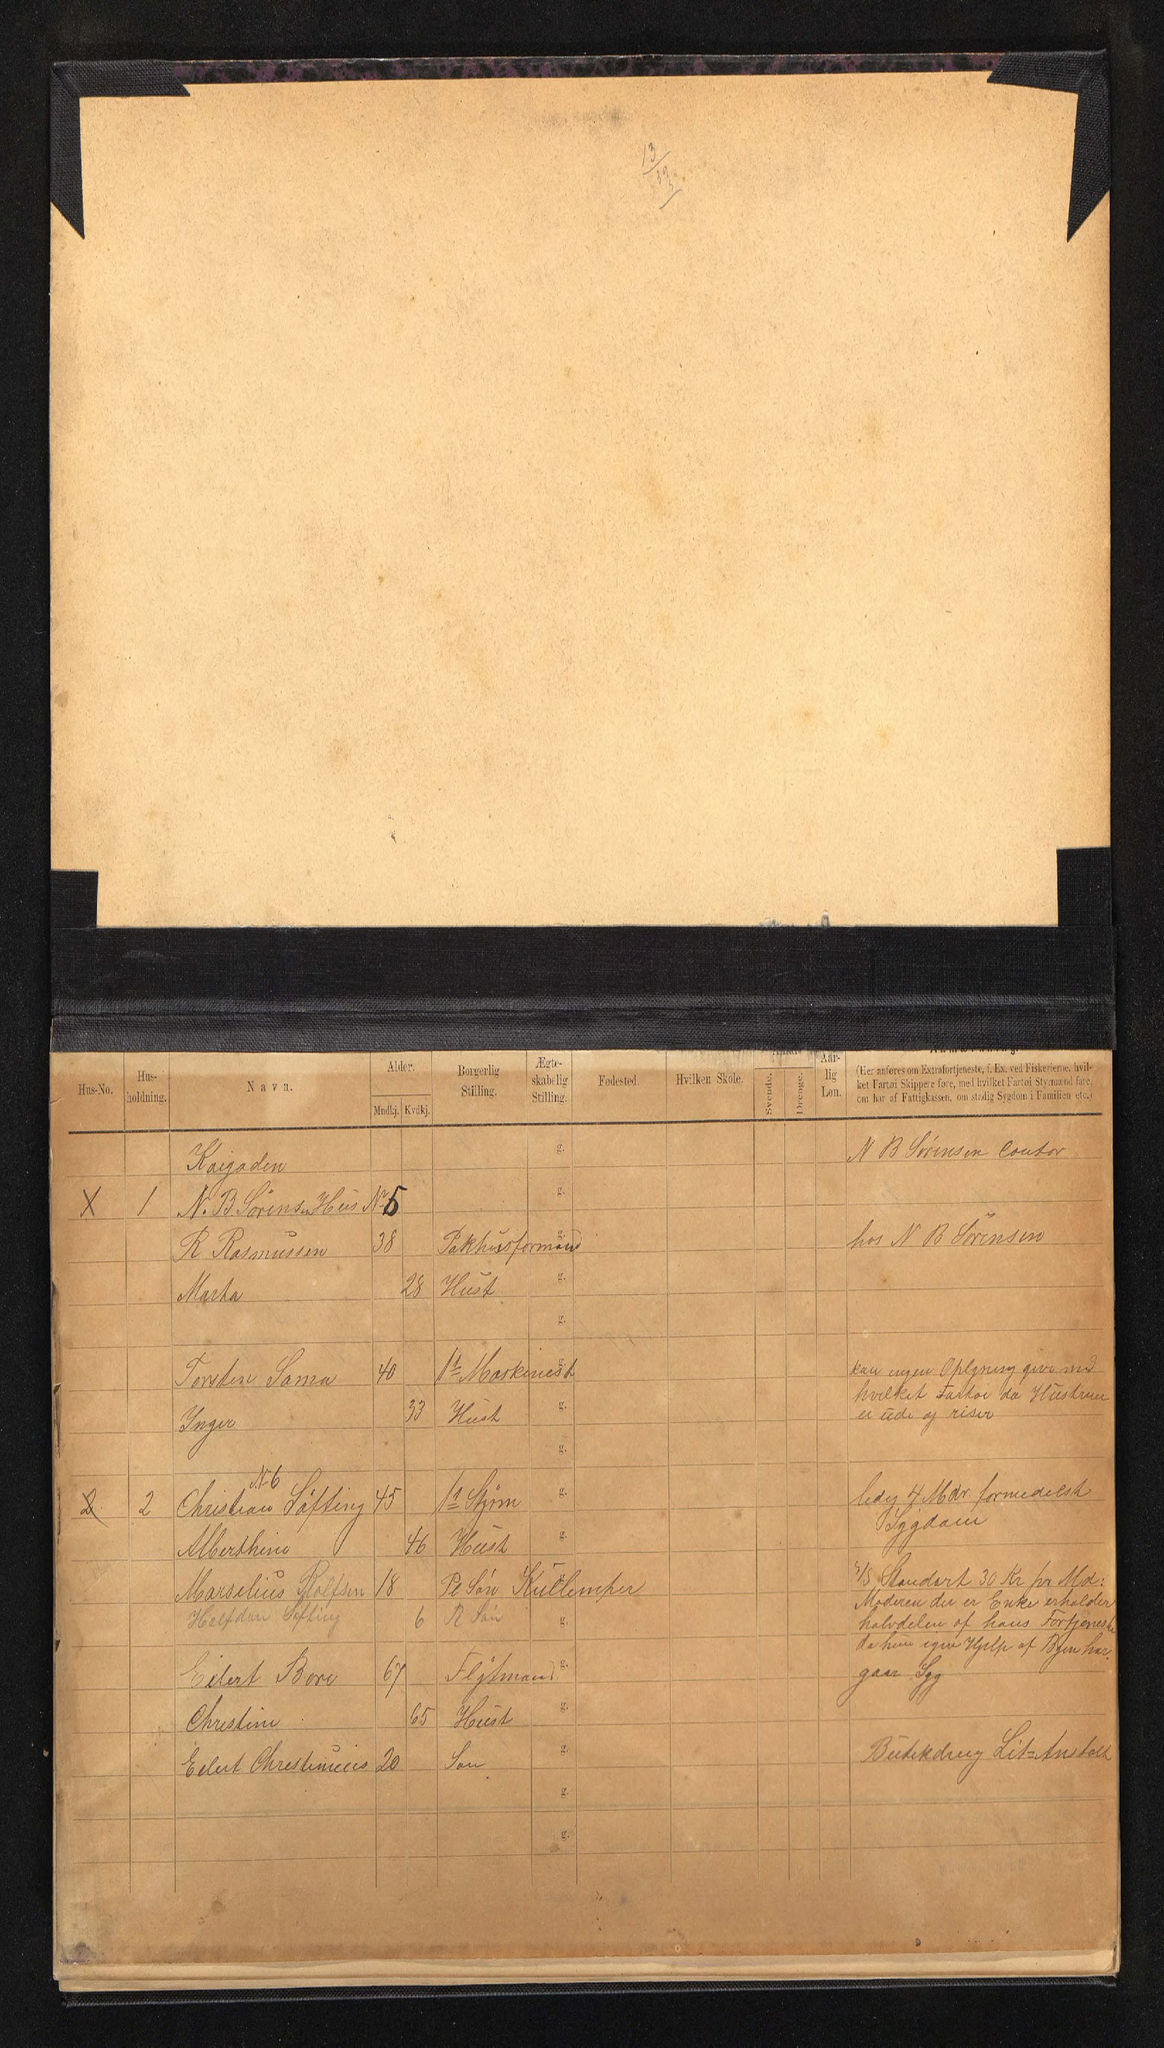 13/39
Hus-No. Hus-holdning. Navn. Alder. Mndkj. Kvdkj. Borgerlig Stilling. Ægte-skabelig Stilling. Fødested. Hvilken Skole. Svende. Drenge. Aar-lig Løn.
(Her anføres om Extrafortjeneste, f. Ex. ved Fiskerierne, hvil-
ket Fartøi Skippere føre, med hvilket Fartøi Styrmænd fare,
om har af Fattigkassen, om stadig Sygdom i Familien etc.)
Kaigaden g. N B Sørensen Contor
X 1 N. B. Sørensen Hus No 5 g.
R Rasmussen 38 Pakhusformand g. hos N B Sørensen
Marta 28 Hust g.
g.
Torsten Soma 40 1st Maskinist g. kan ingen Oplysning give med
hvilket Fartøi da Hustruen
Inger 33 Hust g. er ude og reiser
g.
No 6
2 2 Christian Søfting 45 1st Styrm g. ledig 4 Mdr. formedelst
Sygdom
Alberthine 46 Hust g.
Marselius Rolfsen 18 Pl Søn Kullemper g. D/S Standart 30 Kr pr Md:
Moderen der er Enke erholder
Helfdan Søfting 6 R Søn g. halvdelen af hans Fortjeneste
da hun igen Hjelp af Byen har.
Eilert Bore 67 Fløtmand g. gaar Syg
Christine 65 Hust g.
Eilert Christinius 20 Søn g. Butikdreng Lit= Anstalt
g.
g.